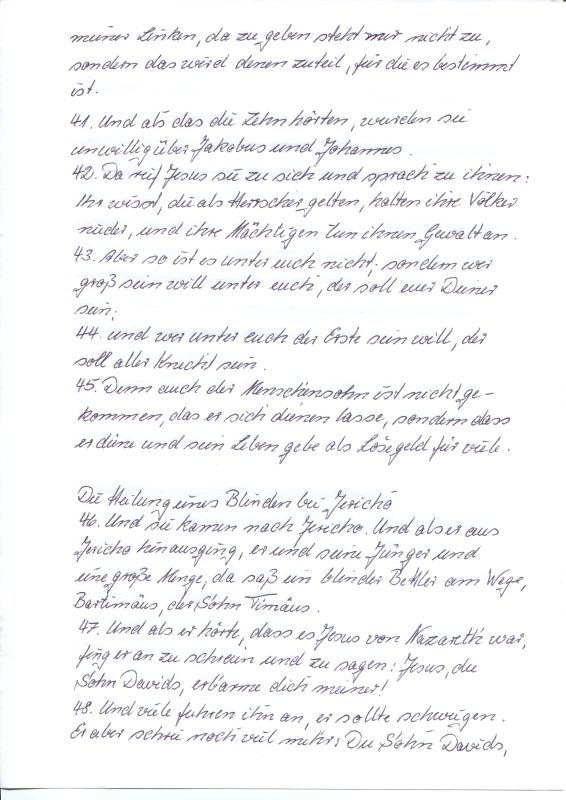 meiner Linken, da zu geben steht mir nicht zu,
sondern das wird denen zuteil, für die es bestimmt
ist.
41. Und als das die Zehn hörten, wurden sie
unwillig über Jakobus und Johannes.
42. Da rief Jesus sie zu sich und sprach zu ihnen:
Ihr wisst, die als Herrscher gelten, halten ihre Völker
nieder, und ihre Mächtigen tun ihnen Gewalt an.
43. Aber so ist es unter euch nicht; sondern wer
groß sein will unter euch, der soll euer Diener
sein;
44. und wer unter euch der Erste sein will, der
soll aller Knecht sein.
45. Denn auch der Menschensohn ist nicht ge-
kommen, das er sich dienen lasse, sondern dass
er diene und sein Leben gebe als Lösegeld für viele.
Die Heilung eines Blinden bei Jericho
46. Und sie kamen nach Jericho. Und als er aus
Jericho hinausging, er und seine Jünger und
eine große Menge, da saß ein blinder Bettler am Wege,
Bartimäus, der Sohn Timäus.
47. Und als er hörte, dass es Jesus von Nazareth war,
fing er an zu schreien und zu sagen: Jesus, du
Sohn Davids, erbarme dich meiner!
48. Und viele fuhren ihn an, er sollte schweigen.
Er aber schrie noch viel mehr: Du Sohn Davids,